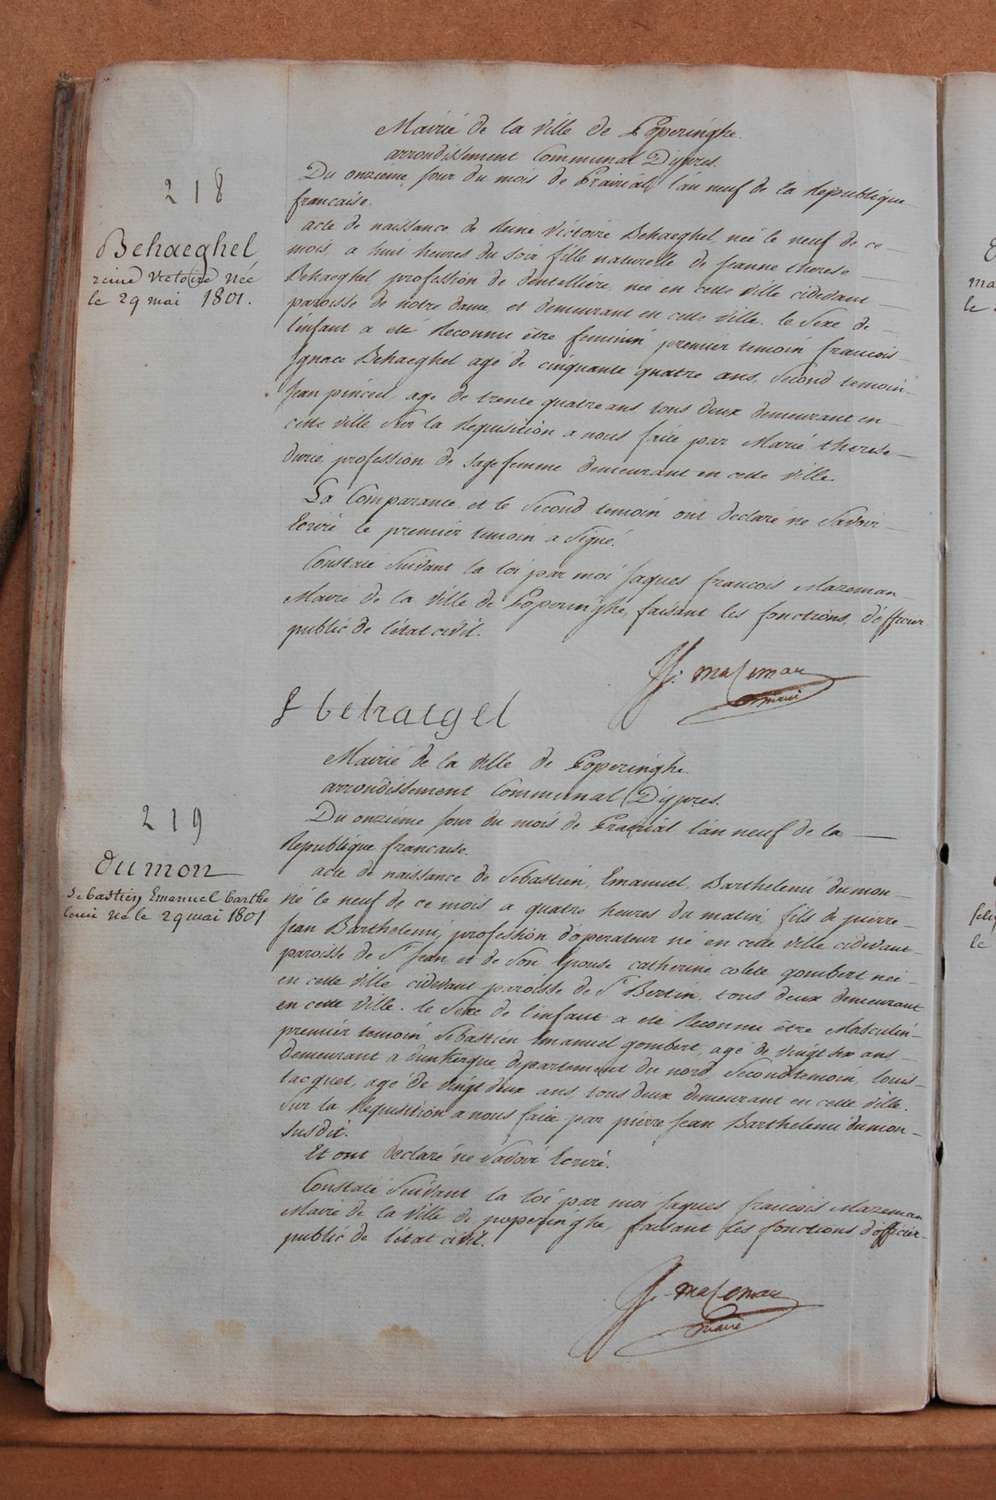 Mairié de la ville de Poperinghe.
arrondissement Communal D'ypres.
218
Behaeghel
reine Victoire née
le 29 mai 1801.
Du onzieme jour du mois de Prairial, l'an neuf de la Republique
francaise.
acte de naissance de Reine Victoire Behaeghel, née le neuf de ce
mois, a huit heures du soir fille naturelle de Jeanne therese
Behaeghel profession de dentelliere, née en cette ville cidevant
paroisse de notre dame, et demeurant en cette ville. le Sexe de
l'infant a eté Reconnu être feminin premier temoin francois
Ignace Behaeghel agé de cinquante quatre ans, Second temoin
Jean age de trente quatre ans tous deux demeurant en
cette ville Sur la Requisition a nous faite par Marié therese
profession de sage femme demeurant en cette ville.
La Comparante et le Second temoin ont declaré ne Savoir
Ecrire le premier temoin a Signé.
Constaté Suivant la loi par moi Jaques francois Mazeman
Maire de la ville de Poperinghe, faisant les fonctions, d'officier
public de l'état civil.
J. mazeman
maire
f behaegel
Mairié de la ville de Poperinghe.
arrondissement Communal D'ypres.
219
dumon
Sebastien Emanuel barthe
lemi né le 29 mai 1801
Du onzieme Jour du mois de Prairial l'an neuf de la
Republique francaise.
acte de naissance de Sebastien, Emanuel, Barthelemi dumon
né le neuf de ce mois a quatre heures du matin, fils de pierre
Jean Barthelemi, profession d'operateur né en cette ville cidevant
paroisse de St Jean, et de Son Epouse catherine colete gombert neé
en cette ville cidevant paroisse de St Bertin, tous deux demeurant
en cette ville. le Sexe de l'infant a eté Reconnu être Masculin
premier temoin Sebastien Emanuel gombert, agé de vingt Six ans
demeurant a dunkerque, departement du nord Second temoin, louis
tacquet, agé de vingt deux ans, tous deux demeurant en cette ville.
Sur la Requisition a nous faite par pierre Jean Barthelemi dumon
Susdit.
Et ont declaré ne Savoir Ecrire.
Constaté Suivant la loi par moi Jaques francois Mazeman
Maire de la ville de poperinghe faisant les fonctions d'officier
public de l'état civil.
J. mazeman
maire